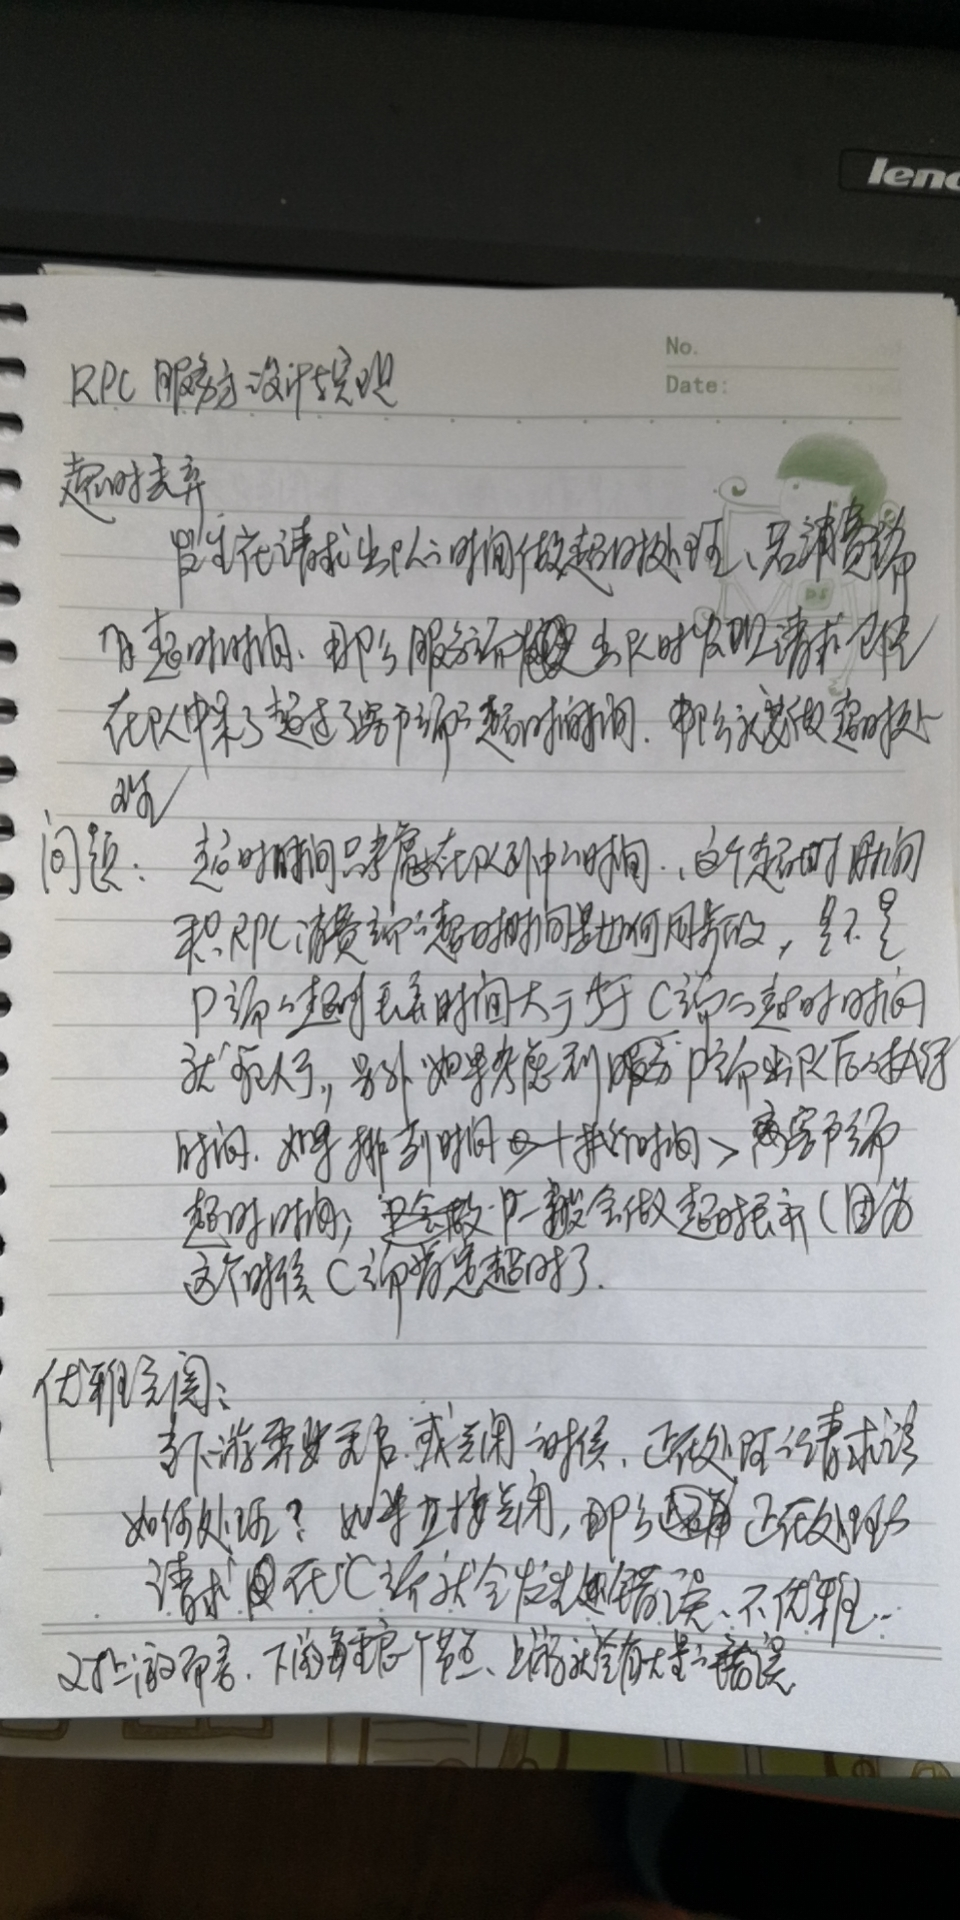 leno
No.
Date:
RPC 服务方设计与实现
超时丢弃
发生在请求出队的时间做超时处理、若消费端
有超时时间、那么服务端出队时发现请求
在队中呆了超过了客户端的超时时间、那么就要做超时处
理
问题: 超时时间只考虑在队列中的时间、这个超时时间
和RPC消费端的超时时间是如何同步的, 是不是
P端的超时丢弃时间大于等于C端的超时时间
就可以了, 另外如果考虑到服务P端出队后的执行
时间、如果排到时间+执行时间>客户端
超时时间, P一般会做超时丢弃(因为
这个时候C端肯定超时了.
优雅关闭:
当下游需要重启、或关闭的时候、正在处理的请求该
如何处理? 如果直接关闭, 那么正在处理的
请求在C端就会发生错误、不优雅..
对上游而言、下游每重启一个节点、上游就会有大量的错误